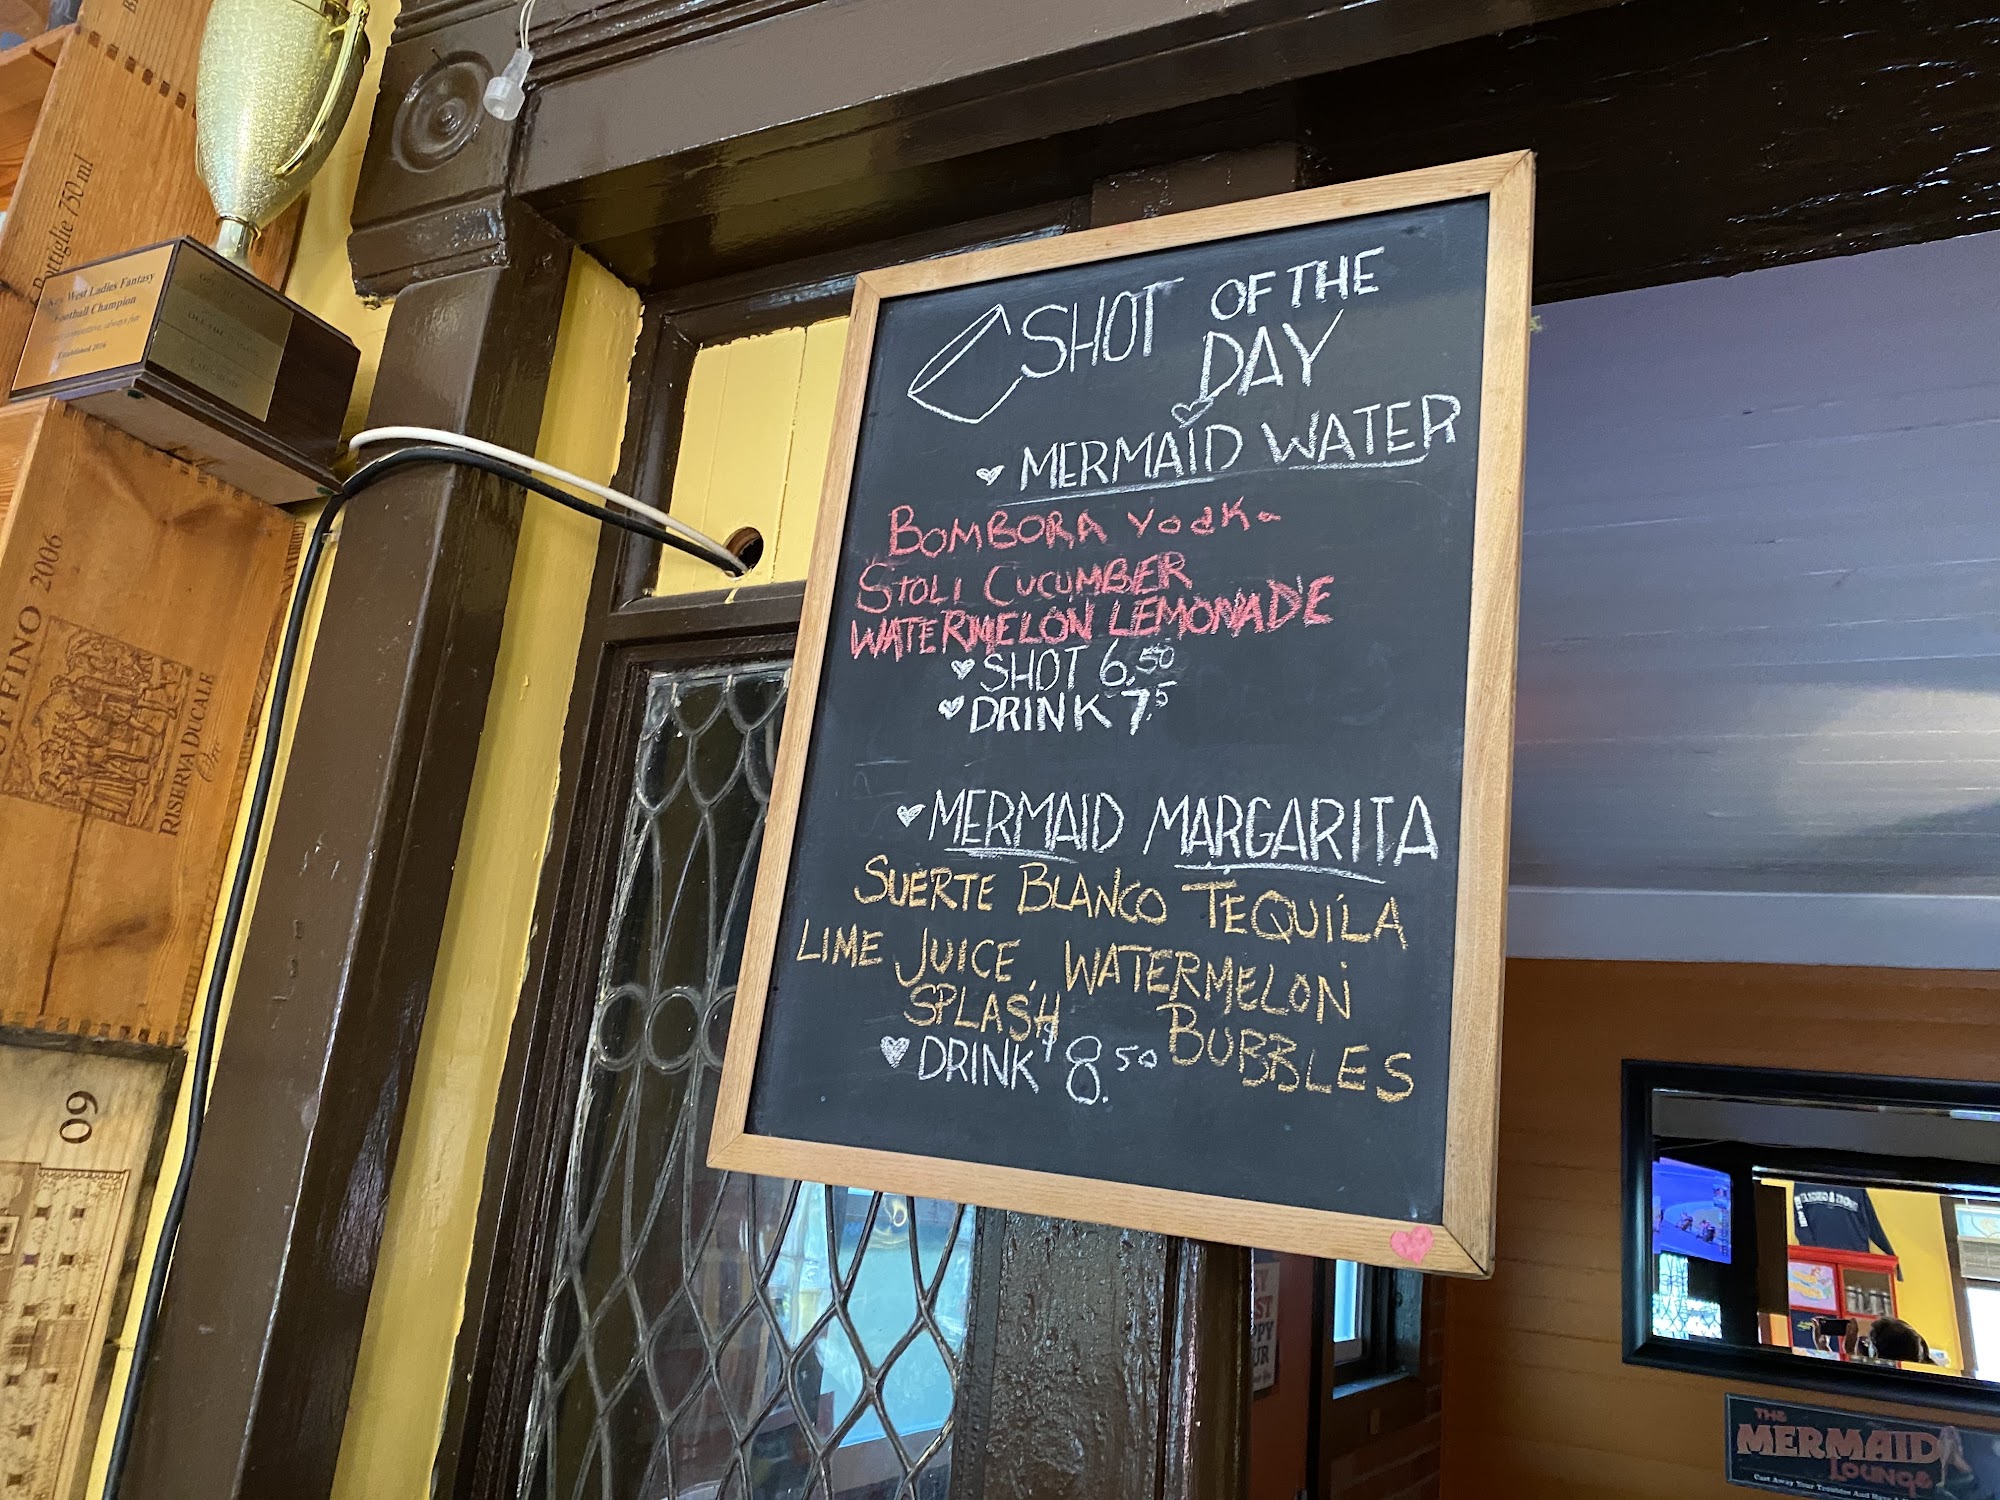 Bottiglie 750 ml
Key West Ladies Fantasy
Football Champion
Established 2016
FFINO 2006
RISERVA DUCALE
Oro
09
SHOT OF THE
DAY
MERMAID WATER
BOMBORA Vodka
STOLI CUCUMBER
WATERMELON LEMONADE
SHOT 6.50
DRINK 7.5
MERMAID MARGARITA
SUERTE BLANCO TEQUILA
LIME JUICE, WATERMELON
SPLASH BUBBLES
DRINK $8.50
THE
MERMAID
LOUNGE
Cast Away Your Troubles And Have A